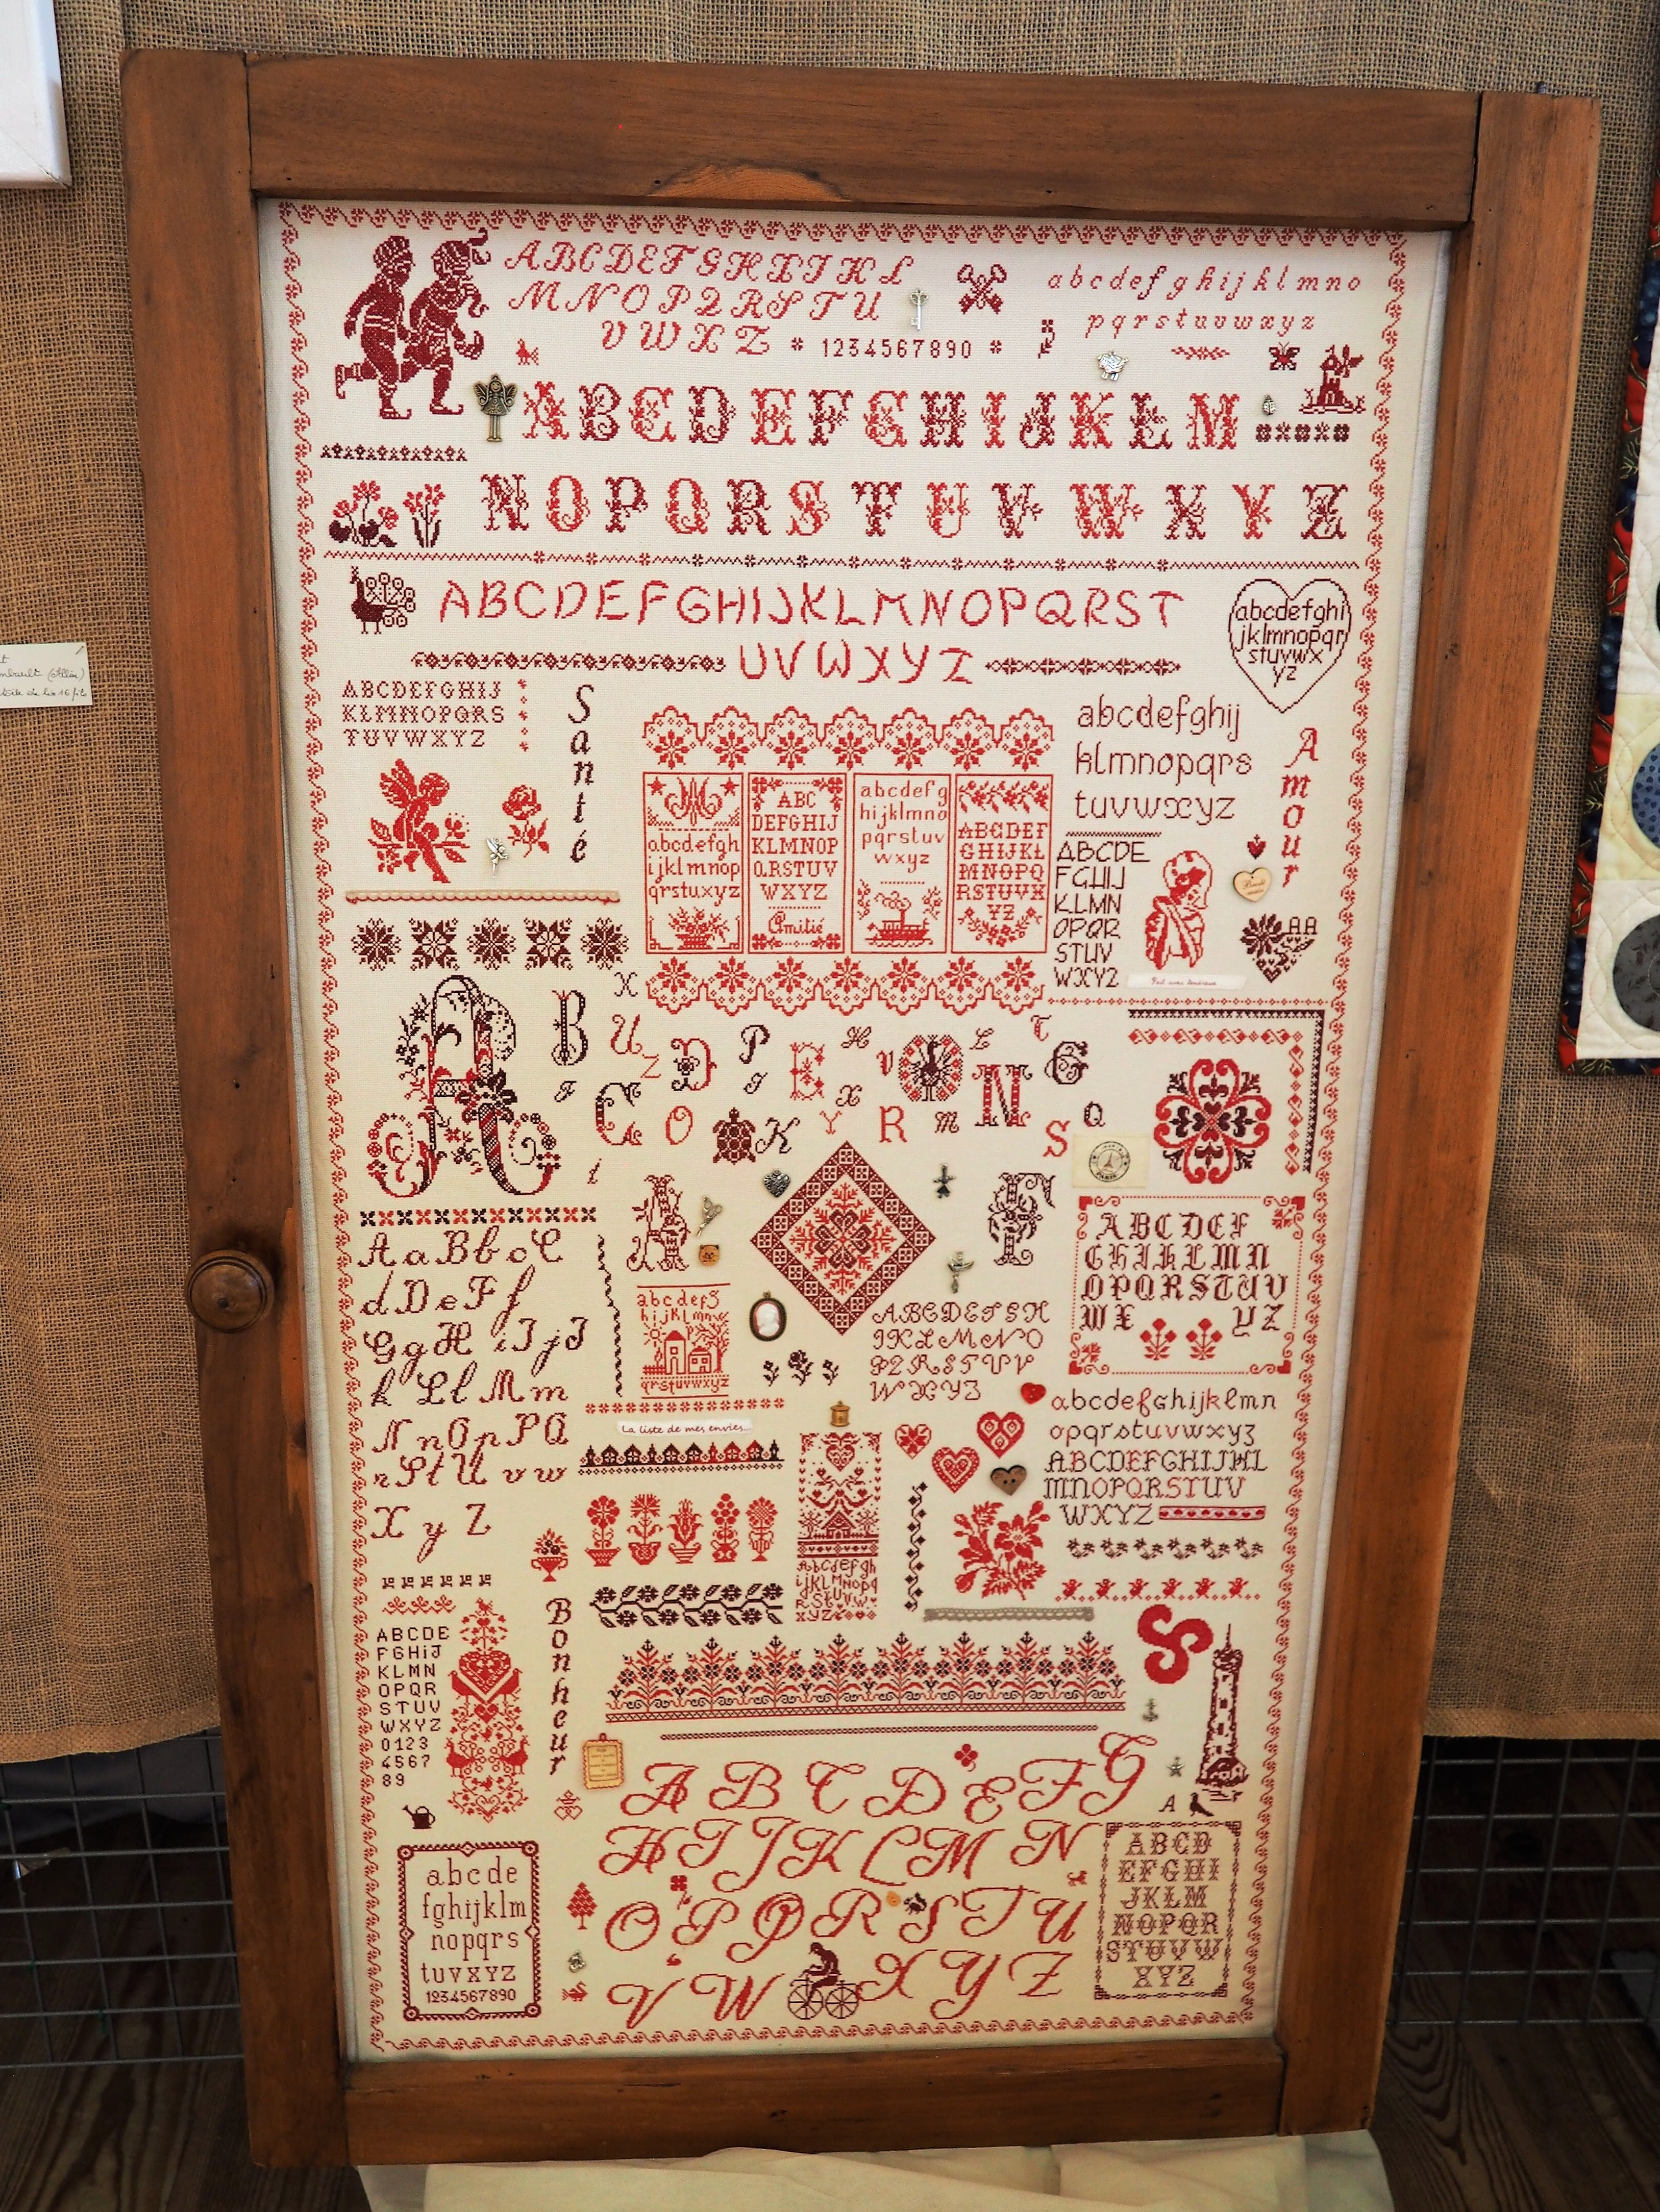 ABCDEFGHIJKL
abcdefghijklmno
MNOPQRSTU
pqrstuvwxyz
VWXZ
1234567890
ABCDEFGHIJKLM
NOPQRSTUVWXYZ
ABCDEFGHIJKLMNOPQRST
UVWXYZ
abcdefghi
jklmnopqr
stuvwx
yz
ABCDEFGHIJ
KLMNOPQRS
TUVWXYZ
Santé
abcdefgh
ijklmnop
qrstuxyz
ABC
DEFGHIJ
KLMNOP
QRSTUV
WXYZ
Amitié
abcdefg
hijklmno
pqrstuv
wxyz
ABCDEF
GHIJKL
MNOPQ
RSTUVX
YZ
abcdefghij
klmnopqrs
tuvwxyz
Amour
ABCDE
FGHIJ
KLMN
OPQR
STUV
WXYZ
AA
X
A B U Z D P E H V L T G
J C O K J X Y R M N S Q
i
PARIS
F
AaBbcC
dDeFf
GgHiIjJ
k Ll Mm
NnOpPQ
rStUvw
XyZ
abcdefg
hijklmn
qrstuvwxyz
ABCDEFGH
IJKLMNO
PQRSTUV
WXYZ
ABCDEF
GHIKLMN
OPQRSTUV
WX YZ
La liste de mes envies...
abcdefghijklmn
opqrstuvwxyz
ABCDEFGHIJKL
MNOPQRSTUV
WXYZ
abcdefgh
ijklmnopq
rstuvw
xyz
Bonheur
ABCDE
FGHiJ
KLMN
OPQR
STUV
WXYZ
0123
4567
89
S
A
ABCDEFG
HIJKLMN
OPQRSTU
VWXYZ
abcde
fghijklm
nopqrs
tuvxyz
1234567890
ABCD
EFGHI
JKLM
NOPQR
STUVW
XYZ